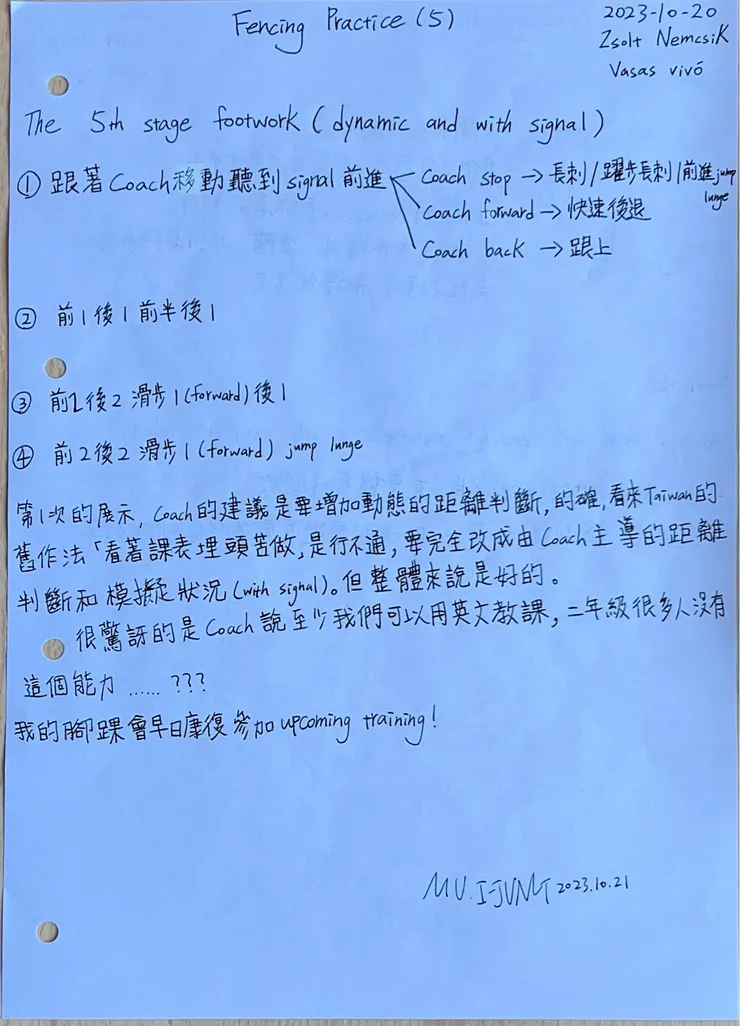 Fencing Practice (5)
2023-10-20
Zsolt Nemcsik
Vasas vívó
The 5th stage footwork (dynamic and with signal)
① 跟著Coach移動聽到signal前進
Coach stop → 長刺/躍步長刺/前進jump lunge
Coach forward → 快速後退
Coach back → 跟上
② 前1後1前半後1
③ 前2後2滑步1(forward)後1
④ 前2後2滑步1(forward) jump lunge
第1次的展示, Coach的建議是要增加動態的距離判斷, 的確, 看來Taiwan的
舊作法「看著課表埋頭苦做, 是行不通, 要完全改成由Coach主導的距離
判斷和模擬狀況(with signal)。但整體來說是好的。
很驚訝的是Coach說至少我們可以用英文教課, 二年級很多人沒有
這個能力 ...... ???
我的腳踝會早日康復參加upcoming training!
MU. I-JUNG 2023.10.21